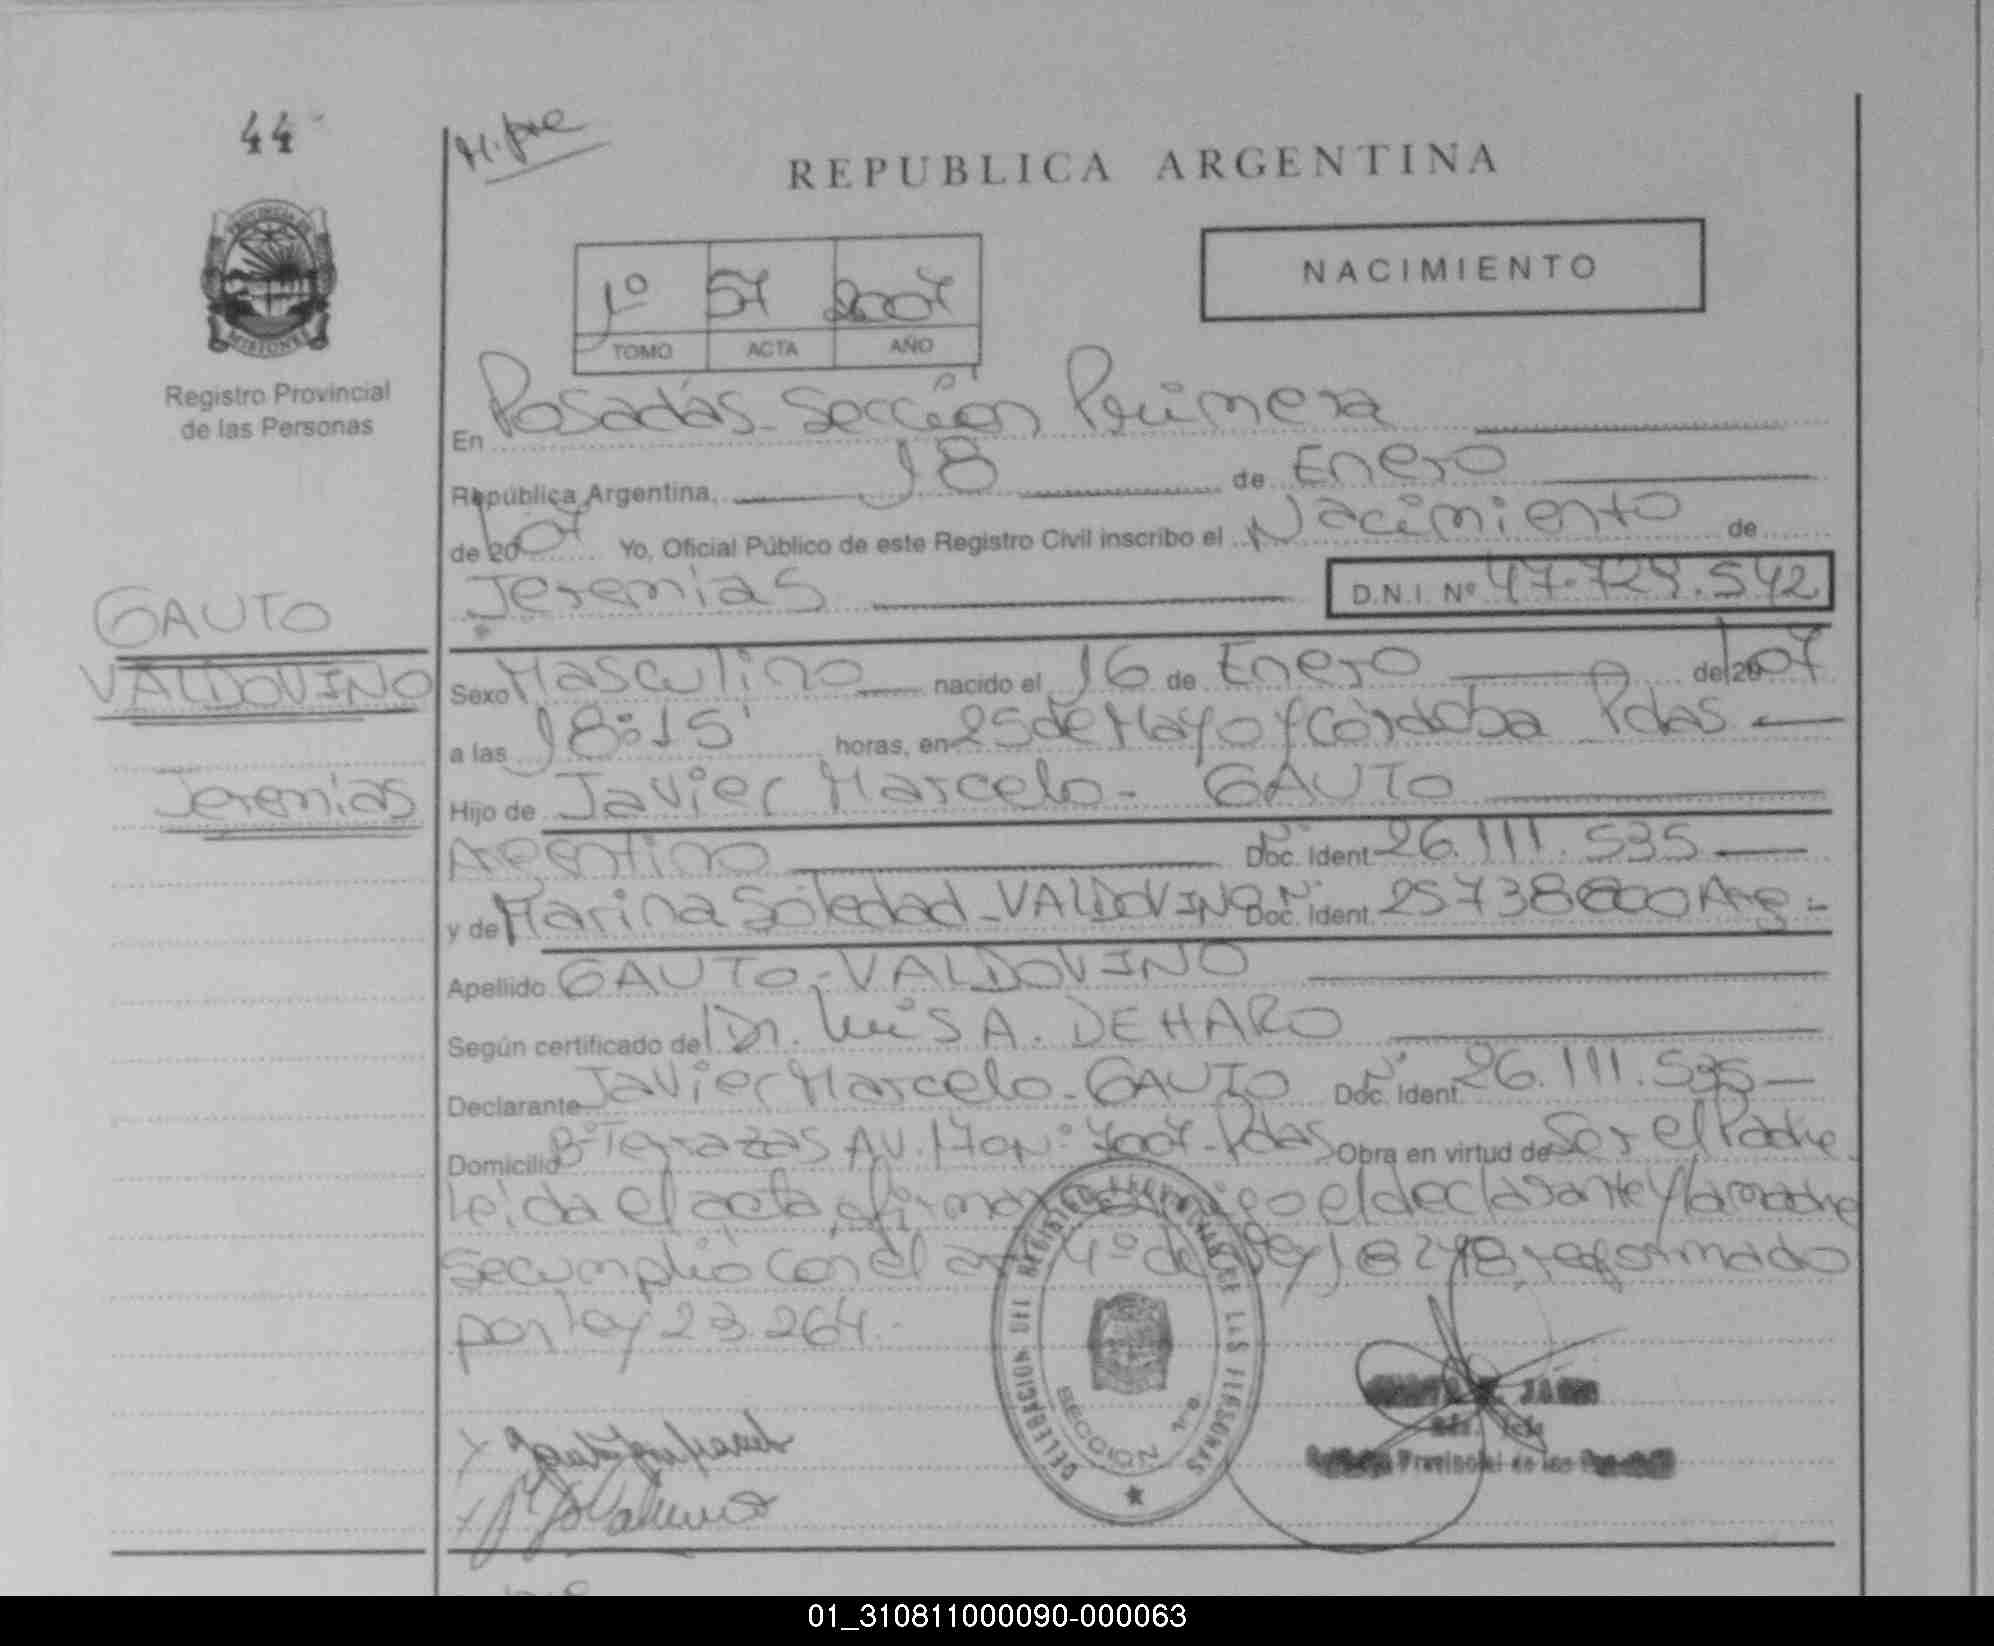 44
REPUBLICA ARGENTINA
NACIMIENTO
1º 57 2007
TOMO ACTA AÑO
Registro Provincial
de las Personas
En Posadas - Sección Primera
República Argentina, 18 de Enero
de 2007 Yo, Oficial Público de este Registro Civil inscribo el Nacimiento de
Jeremias D.N.I. Nº 47.729.542
GAUTO
VALDOVINO
Jeremias
Sexo Masculino nacido el 16 de Enero de 2007
a las 18:15' horas, en 25 de Mayo y Córdoba Pdas
Hijo de Javier Marcelo - GAUTO
Argentino Nº Doc. Ident. 26.111.535
y de Marina Soledad - VALDOVINO Nº Doc. Ident. 25738800 Arg -
Apellido GAUTO - VALDOVINO
Según certificado del Dr. Luis A. DE HARO
Declarante Javier Marcelo - GAUTO Nº Doc. Ident. 26.111.535
Domicilio Bº Terrazas AV. 170 Nº 7007 - Pdas Obra en virtud de Ser el Padre
Leída el acta, firman conmigo el declarante y la madre
Se cumplió con el art 4º de ley 18248, reformado
por ley 23.264.
DELEGACION DEL REGISTRO PROVINCIAL DE LAS PERSONAS
SECCION 1ra
Provincial de las
01_310811000090-000063